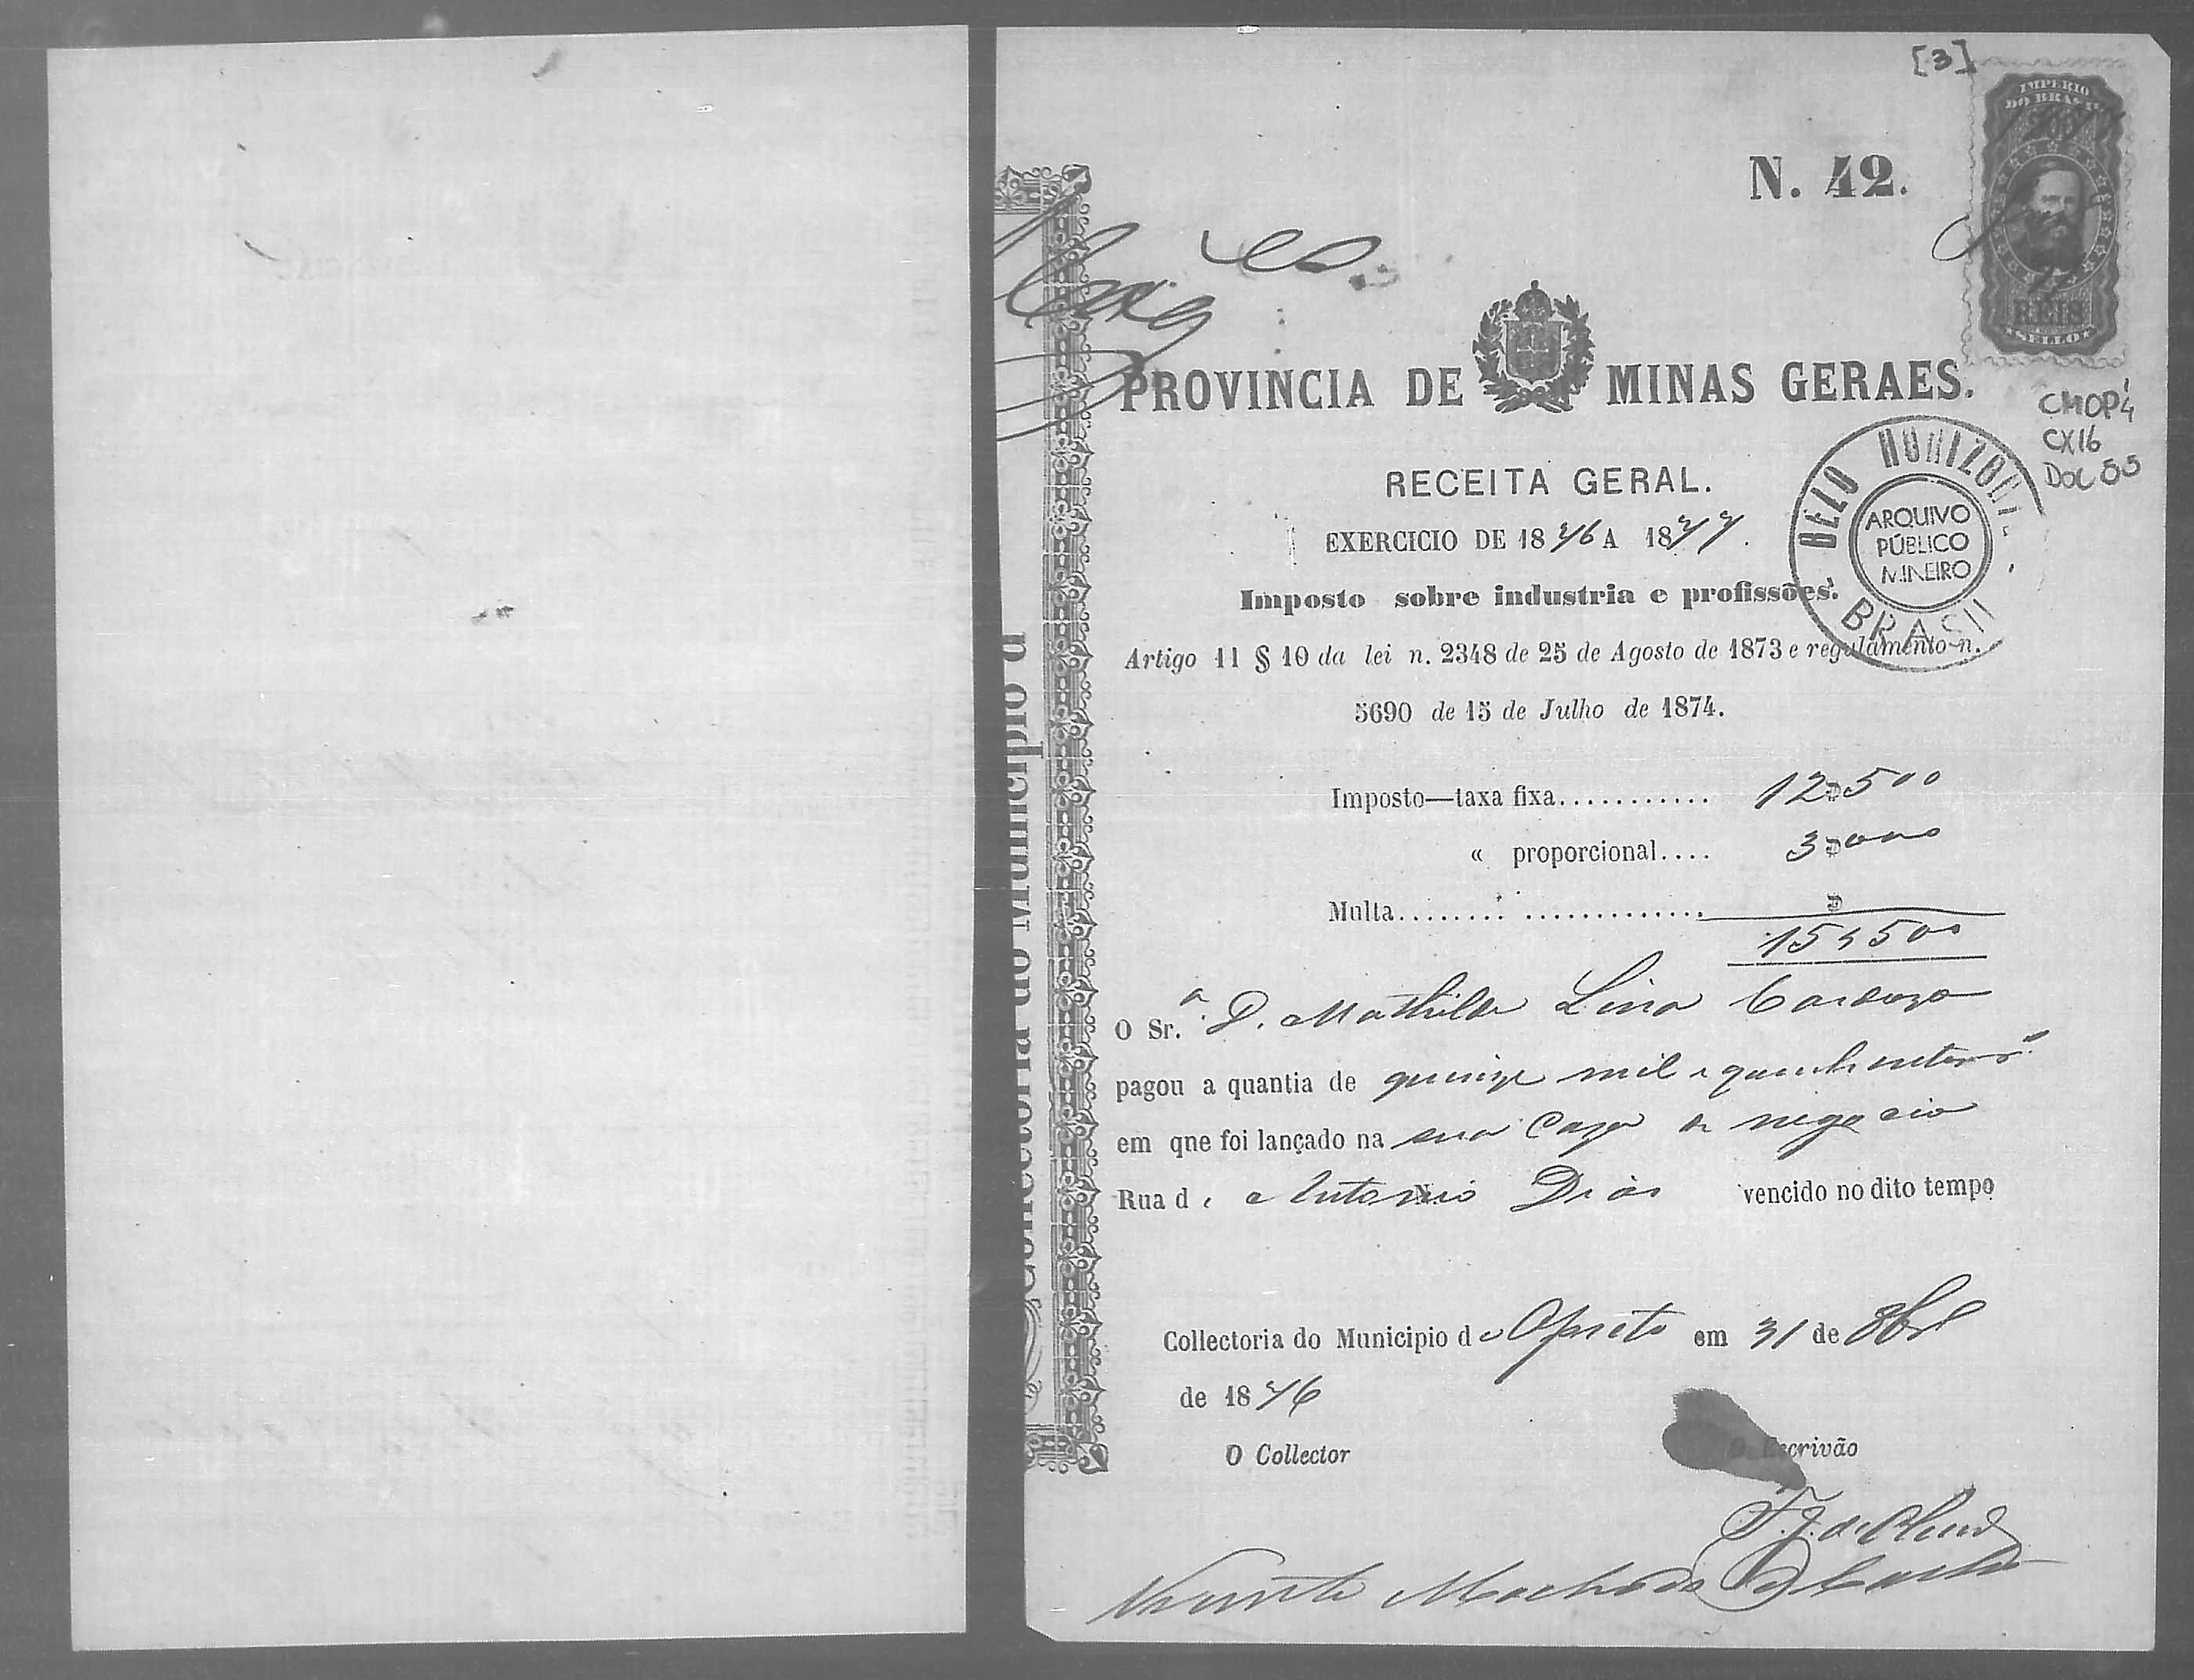 [3]
IMPERIO
DO BRASIL
200
REIS
SELLO
N. 42.
PROVINCIA DE MINAS GERAES.
CMOP 4
CX16
DOC 55
BELO HORIZON
ARQUIVO
PÚBLICO
MINEIRO
BRASIL
RECEITA GERAL.
EXERCICIO DE 1876 A 1877.
Imposto sobre industria e profissões.
Artigo 11 § 10 da lei n. 2348 de 25 de Agosto de 1873 e regulamento n.
5690 de 15 de Julho de 1874.
Imposto—taxa fixa........... 12$500
« proporcional.... 3$000
Multa..................... $
15$500
O Sr.ª D. Mathilde Lina Cardozo
pagou a quantia de quinze mil e quinhentos rs
em que foi lançado na sua Caza de negocio
Rua de Antonio Dias vencido no dito tempo
Collectoria do Municipio de OPreto em 31 de 8br
de 1876
O Collector O Escrivão
F. J. de
Vicente Machado de Castro
Collectoria do Municipio d